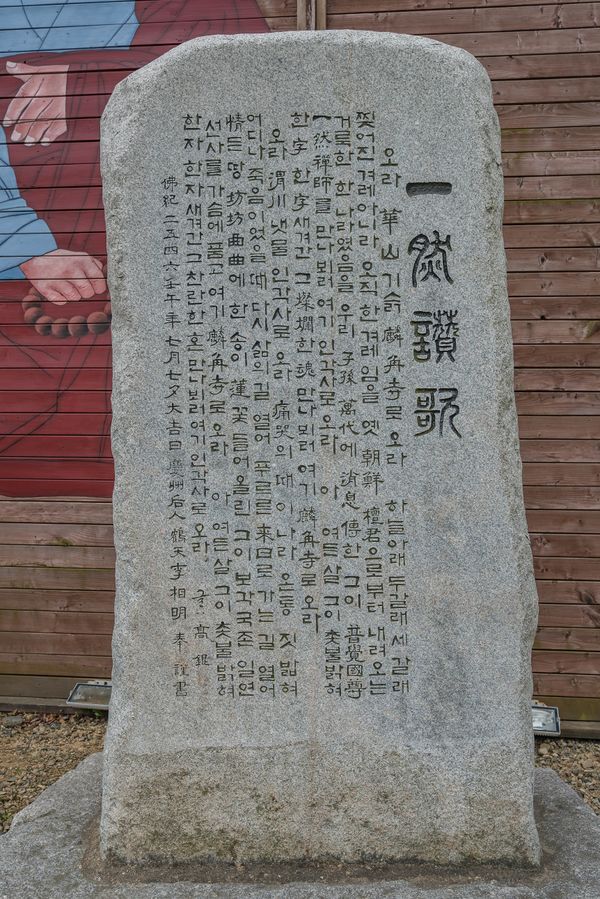 一然讚歌
오라 華山 기슭 麟角寺로 오라 하늘아래 두갈래 세갈래
찢어진 겨레 아니라 오직 한 겨레임을 옛 朝鮮 檀君으로부터 내려오는
거룩한 한 나라였음을 우리 子孫 萬代에 消息 傳한 그이 普覺國尊
一然禪師를 만나뵈러 여기 인각사로 오라 아 여든살 그이 촛불 밝혀
한 字 한 字 새겨간 그 燦爛한 魂 만나뵈러 여기 麟角寺로 오라
오라 渭川 냇물 인각사로 오라 痛哭의 때이니라 온통 짓밟혀
어디나 죽음이었을때 다시 삶의 길 열어 푸르른 來日로 가는 길 열어
情든 땅 坊坊曲曲에 한송이 蓮꽃 들어올린 그이 보각국존 일연
선사를 가슴에 품고 여기 麟角寺로 오라 아 여든살 그이 촛불 밝혀
한자 한자 새겨간 그 찬란한 혼 만나뵈러 여기 인각사로 오라 글 高銀
佛紀 二五四六 壬午年 七月七夕 大吉日 慶州后人 鶴天 李相明 奉 謹書